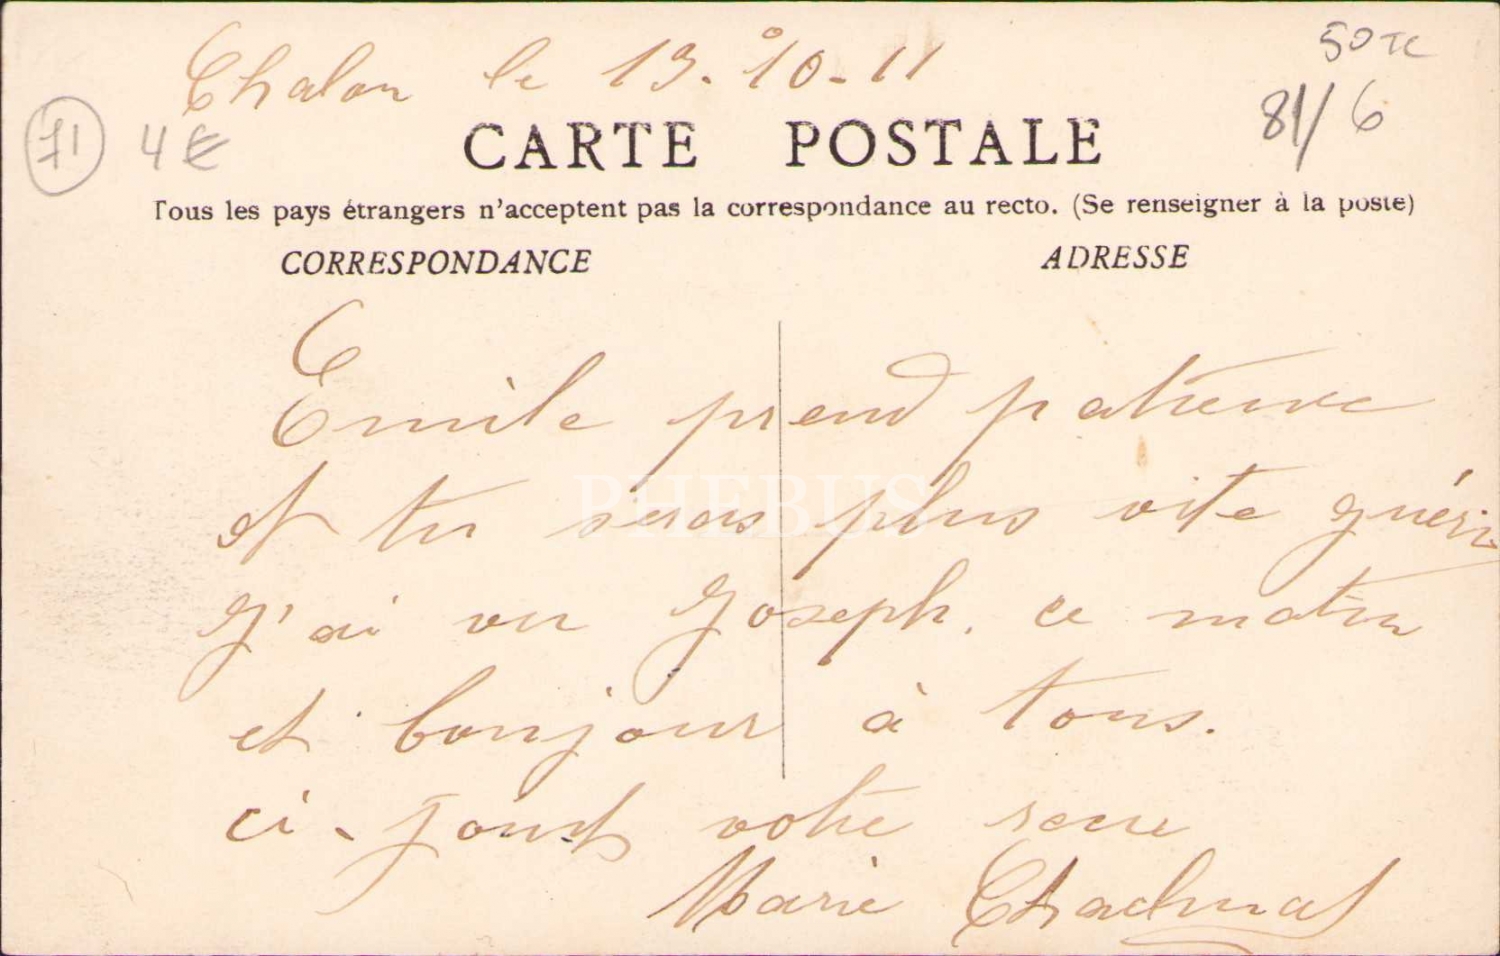 Chalon le 13.10-11
50TC
81/6
71
4€
CARTE POSTALE
Tous les pays étrangers n'acceptent pas la correspondance au recto. (Se renseigner à la poste)
CORRESPONDANCE
ADRESSE
Emile prend patience
et tu seras plus vite guéri
J'ai vu Joseph. ce matin
et bonjour à tous.
ci-joint votre sœur
Marie
PHEBUS